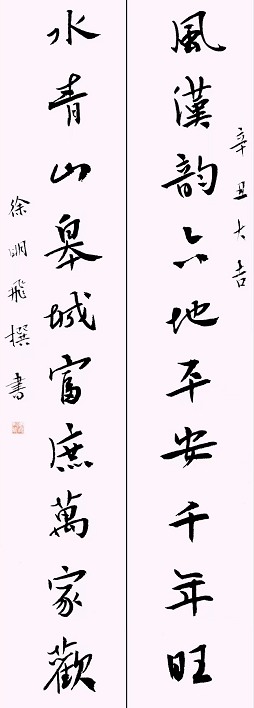 辛丑大吉
風漢韵六地平安千年旺
水青山皋城富庶萬家歡
徐明飛撰書